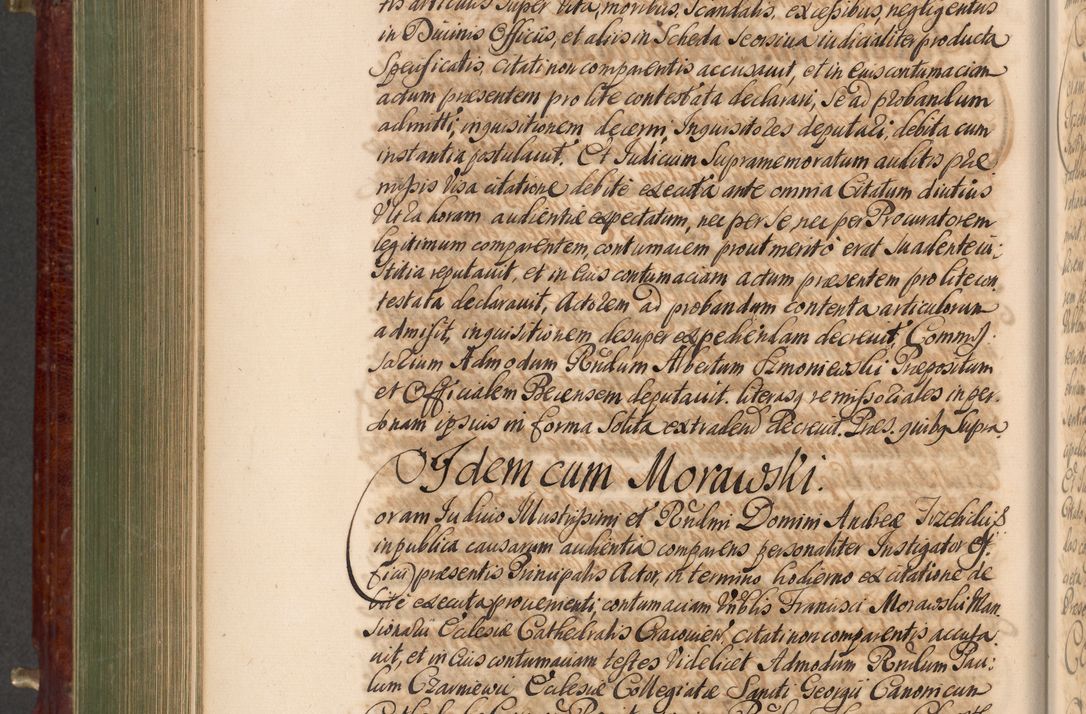 tis articulis super vita, moribus, scandalis, excessibus, negligentiis
in Divinis Officiis, et aliis in Scheda seorsiua iudicialiter producta
Specificatis, citati non comparentis accusavit, et in eius contumaciam
actum præsentem pro lite contestata declarari, se ad probandum
admitti, inquisitionem decerni, Inquisitores deputari, debita cum
instantia postulavit. Et Judicium Supramemoratum auditis præ
missis visa citatione debite executa ante omnia Citatum diutius
Ultra horam audientiæ expectatum, nec per Se nec per Procuratorem
legitimum comparentem, contumacem prout merito erat Suadente iu:
stitia reputavit, et in Eius contumaciam actum præsentem pro lite con
testata declaravit, Actorem ad probandum contenta articulorum
admisit, inquisitionem desuper expediendam decrevit, Commis
sarium Admodum Rndum Albertum Szmoniewski Præpositum
et Officialem Becensem deputavit. literasq remissoriales in per:
sonam ipsius in forma Solita extradend decrevit. Præs. quibq Supra
Idem cum Morawski.
Coram Judicio Illustrissimi et Rndmi Domini Andreæ Trzebicki &
in publica causarum audientia comparens personaliter Instigator Of:
ficii præsentis Principalis Actor, in termino hodierno ex citatione de
bite executa provenienti, contumaciam Vnblis Francisci Morawski Man
sionarii Ecclesiæ Cathedralis Cracovien, citati non comparentis accusa
vit, et in Eius contumaciam testes videlicet Admodum Rndum Pau:
lum Czarniewicz Ecclesiæ Collegiatæ Sancti Georgii Canonicum